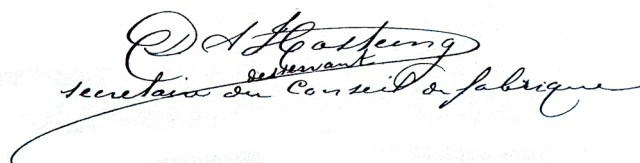 Hosteing
desservant
secretaire du Conseil de fabrique